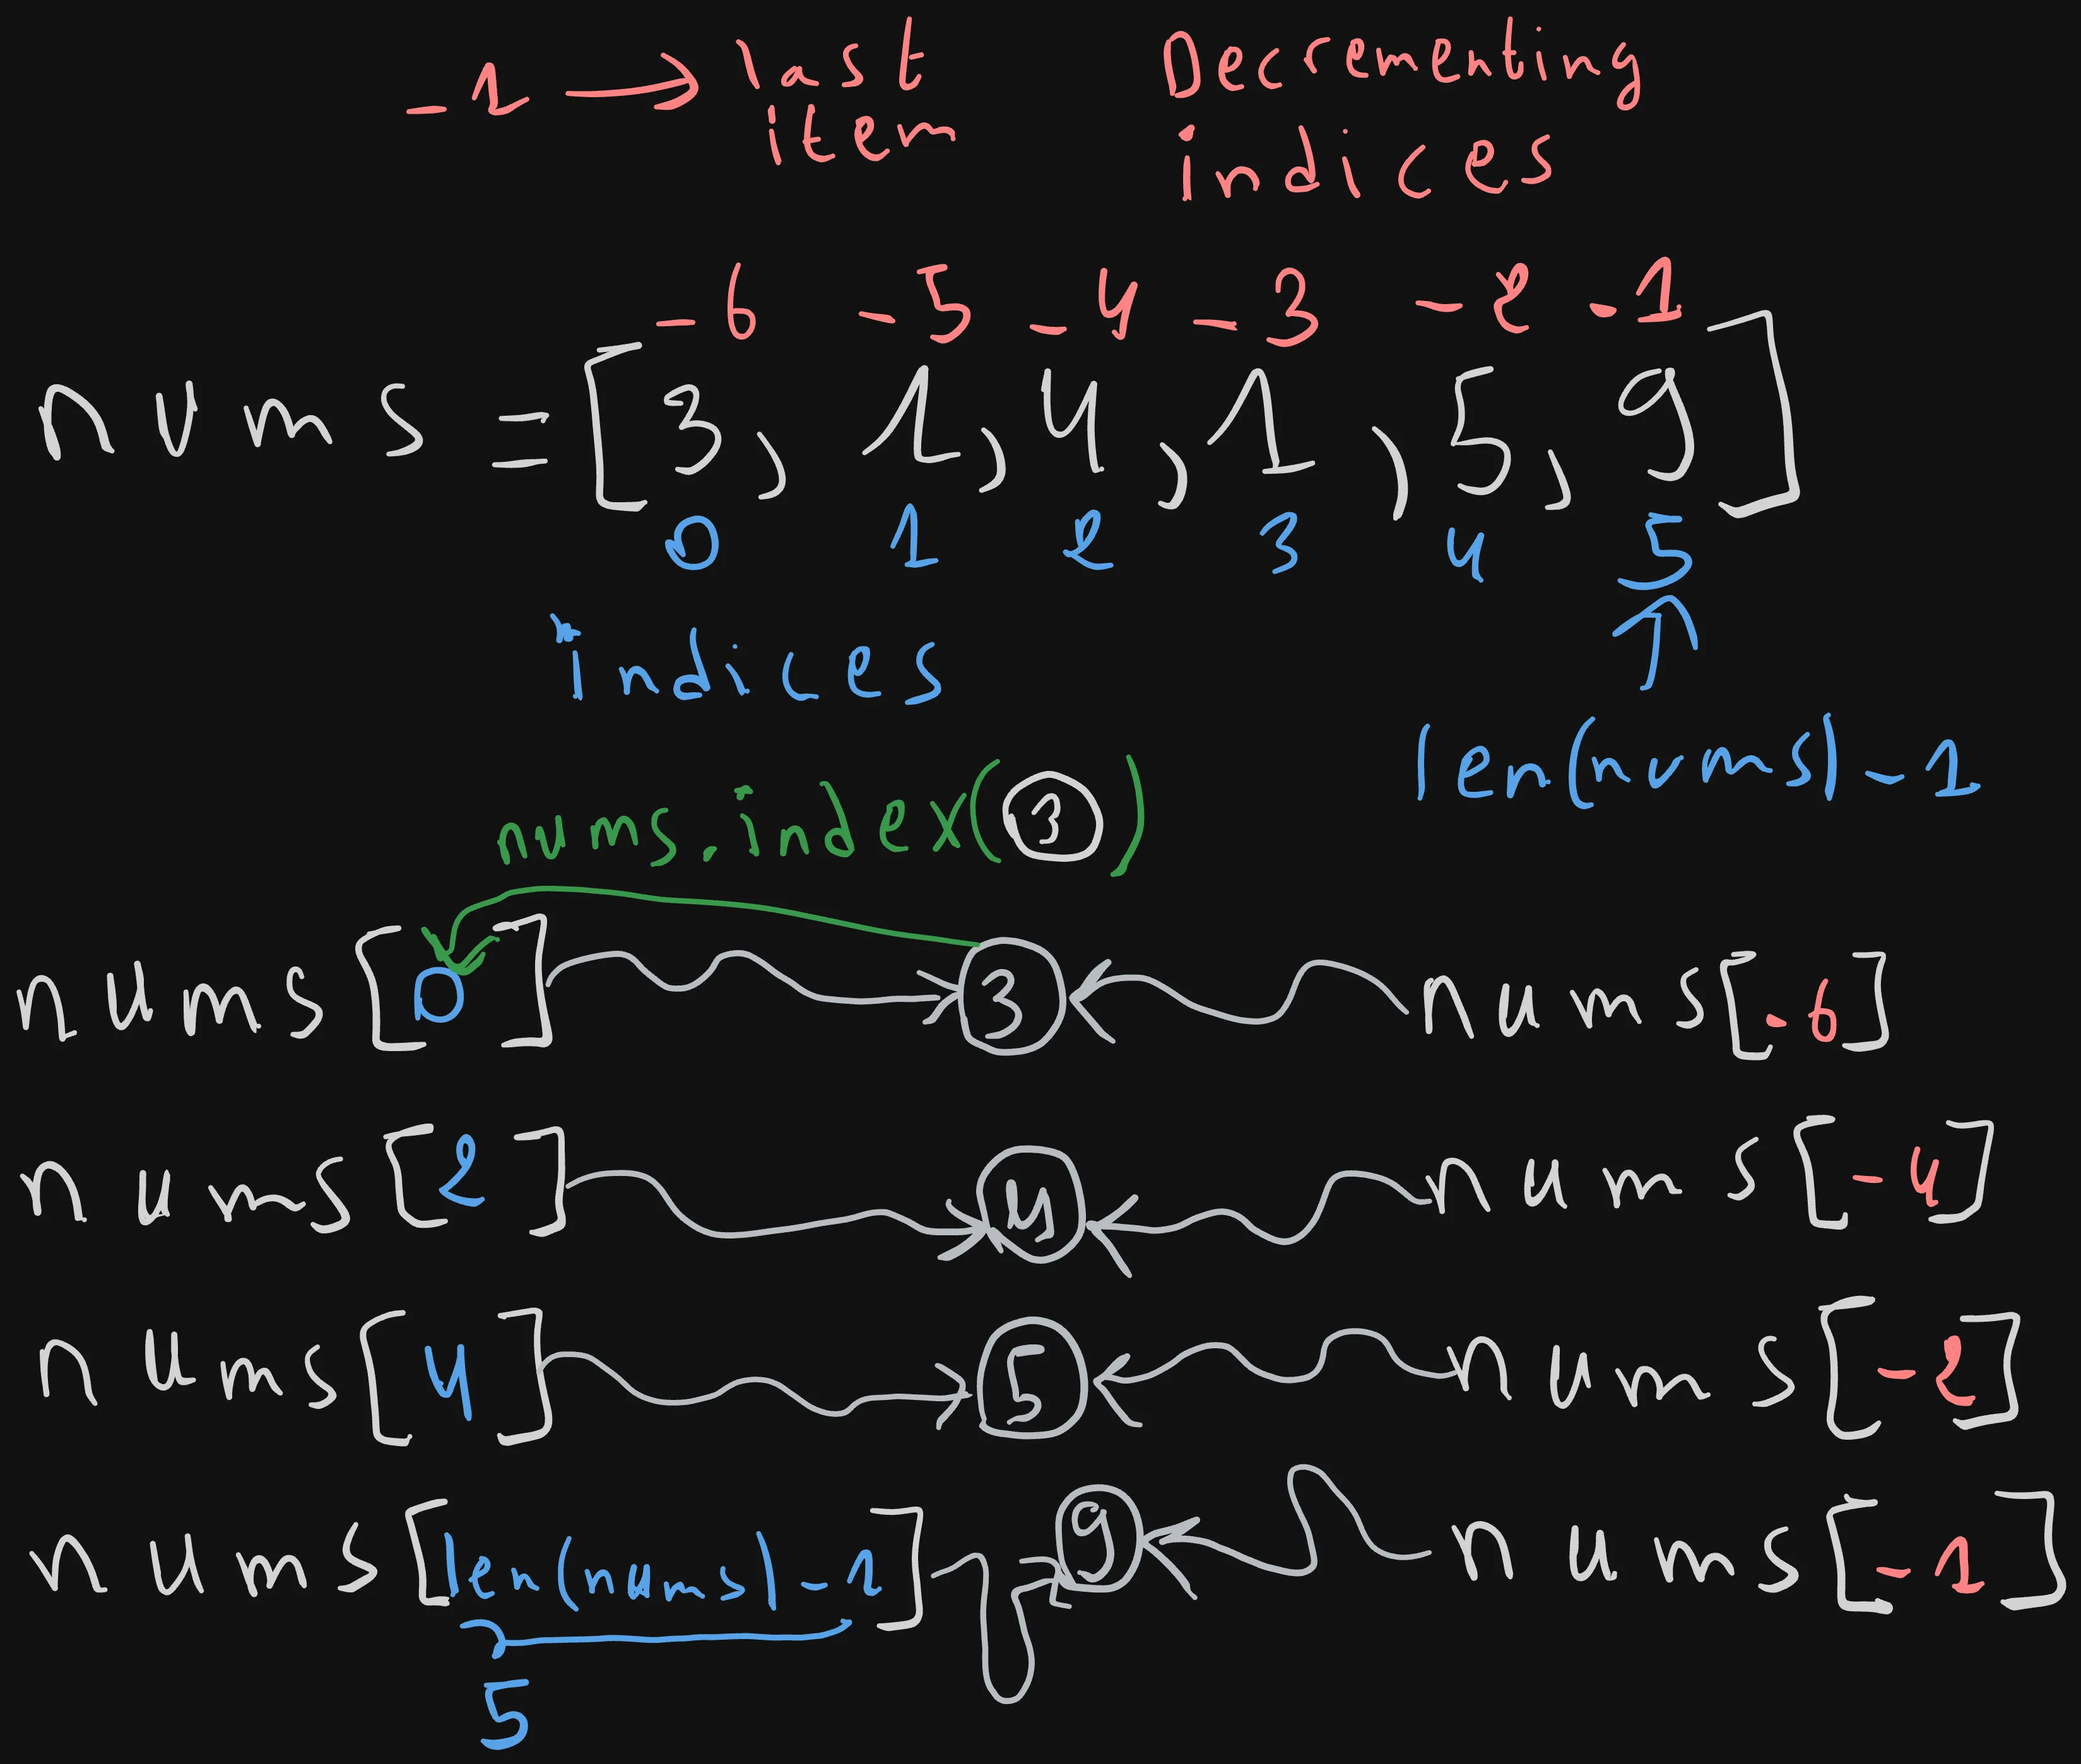 -1 → last item
Decrementing indices
-6 -5 -4 -3 -2 -1
nums = [3, 1, 4, 1, 5, 9]
0 1 2 3 4 5
indices
len(nums)-1
nums.index(3)
nums[0] 3 nums[-6]
nums[2] 4 nums[-4]
nums[4] 5 nums[-2]
nums[len(nums)-1] 9 nums[-1]
5